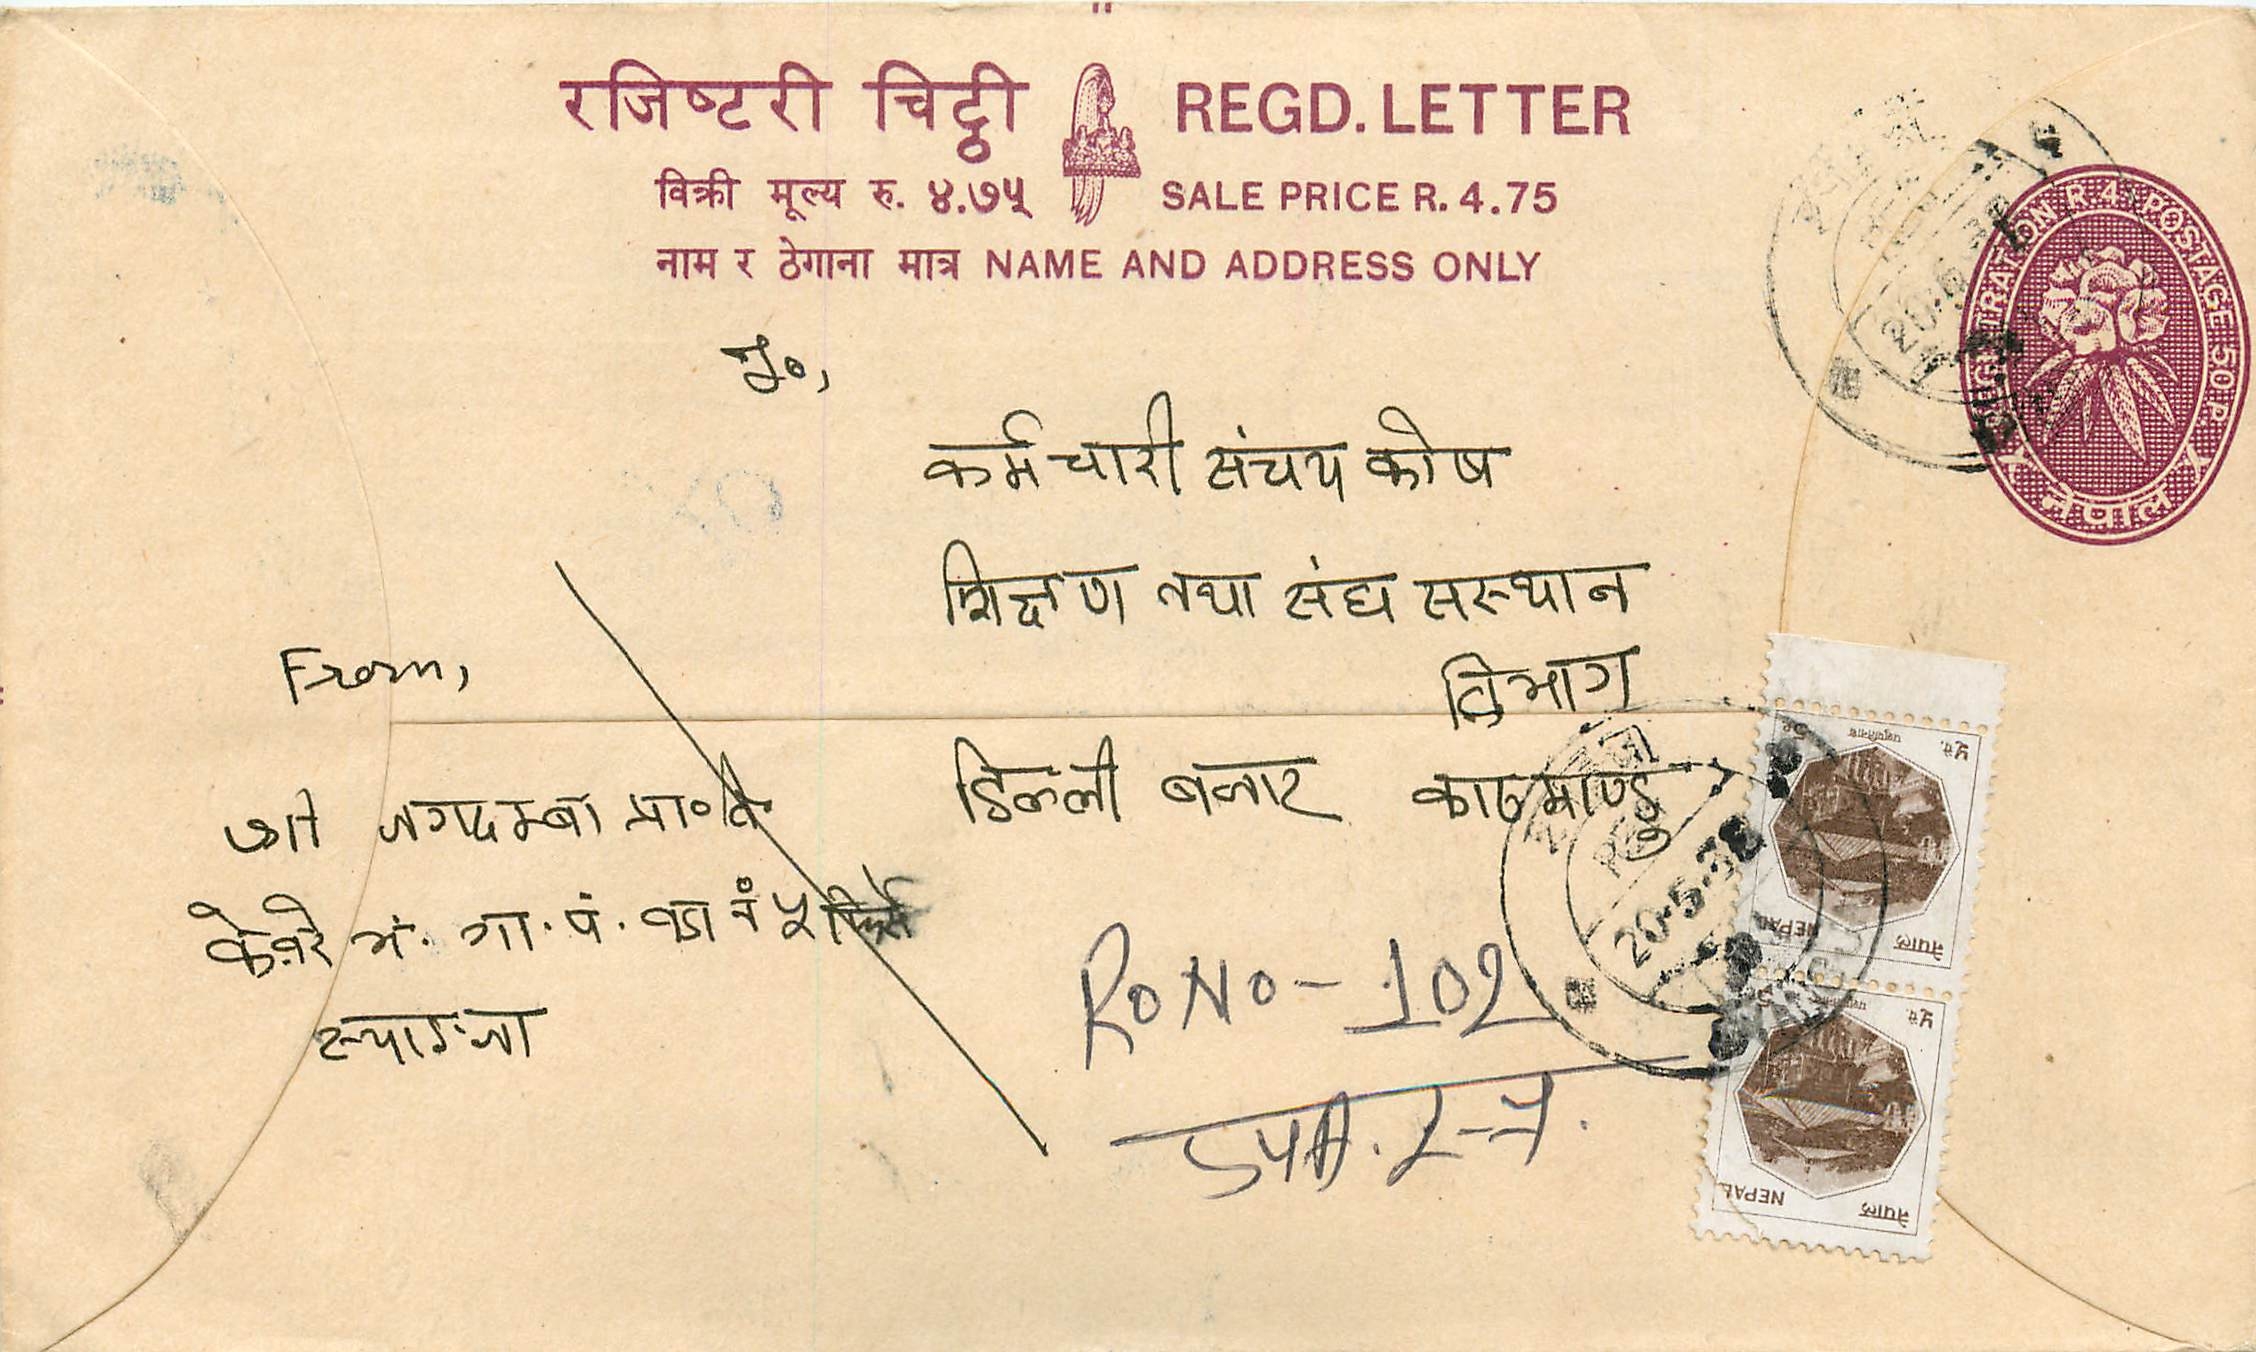 रजिष्टरी चिट्ठी REGD. LETTER
विक्री मूल्य रु. ४.७५ SALE PRICE R. 4.75
नाम र ठेगाना मात्र NAME AND ADDRESS ONLY
REGISTRATION R. 4. POSTAGE 50 P.
नेपाल
कर्मचारी संचय कोष
शिक्षण तथा संघ सस्थान
विभाग
डिल्ली बजार काठमाण्डु
From,
श्री जगदम्बा प्रा० वि
गा. पं. वडा नं ५
स्याङजा
Ro No - 102
20-5-38
नेपाल NEPAL
नेपाल NEPAL